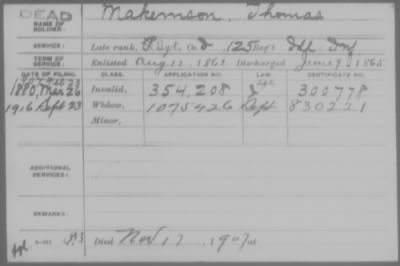 DEAD
NAME OF SOLDIER: Makemson, Thomas
SERVICE: Late rank, Sgt, Co. D, 125 Reg't Ill. Inf.
TERM OF SERVICE: Enlisted Aug 12, 1862 Discharged June 9, 1865
DATE OF FILING. CLASS. APPLICATION NO. LAW. CERTIFICATE NO.
1880, Mar 26 Invalid, 354.208 300778
1916 Sept 23 Widow, 1075426 Sept 830221
Minor,
ADDITIONAL SERVICES:
REMARKS:
Died Nov 17, 1907, at